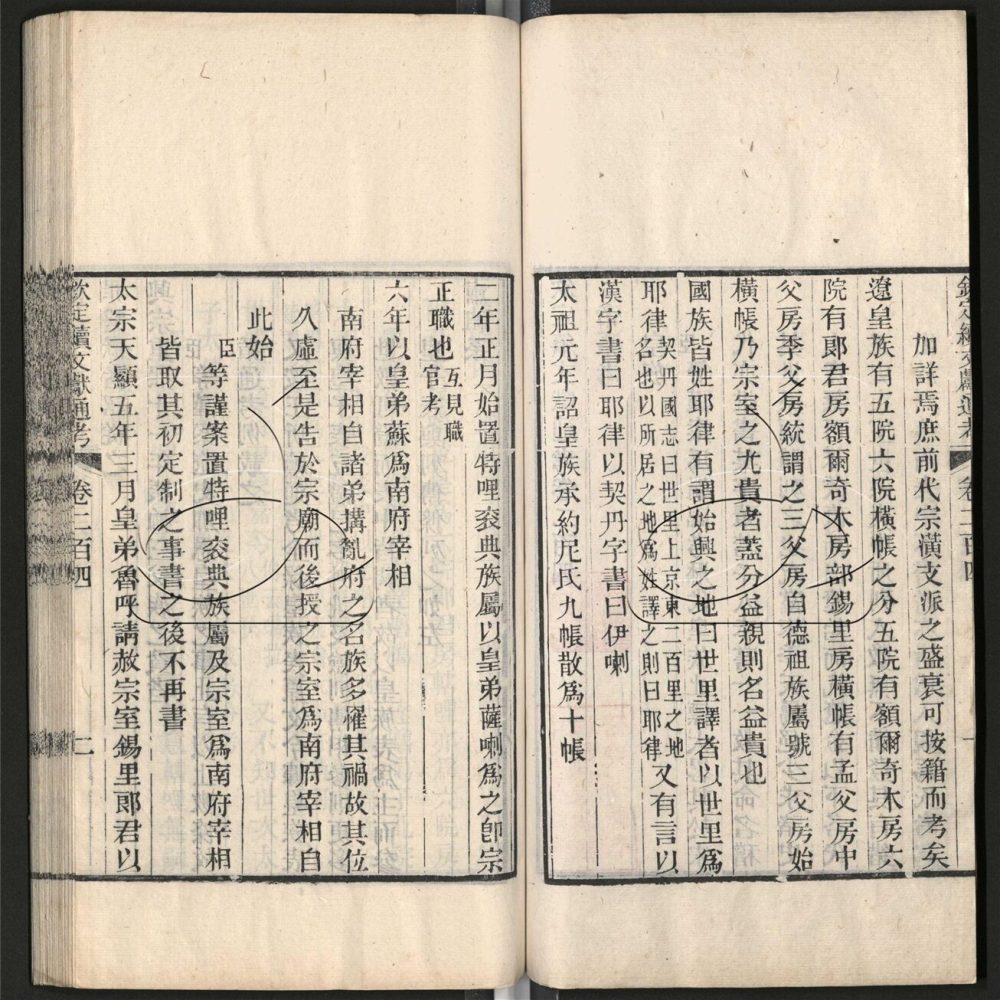 加詳焉庶前代宗潢支派之盛衰可按籍而考矣
遼皇族有五院六院橫帳之分五院有額爾奇木房六
院有郎君房額爾奇木房部錫里房橫帳有孟父房中
父房季父房統謂之三父房自德祖族屬號三父房始
橫帳乃宗室之尤貴者蓋分益親則名益貴也
國族皆姓耶律有謂始興之地曰世里譯者以世里爲
耶律契丹國志曰世里上京東二百里之地名也以所居之地爲姓譯之則曰耶律又有言以
漢字書曰耶律以契丹字書曰伊喇
太祖元年詔皇族承約尼氏九帳散爲十帳
二年正月始置特哩衮典族屬以皇弟薩喇爲之卽宗
正職也互見職官考
六年以皇弟蘇爲南府宰相
南府宰相自諸弟搆亂府之名族多罹其禍故其位
久虛至是告於宗廟而後授之宗室爲南府宰相自
此始
臣等謹案置特哩衮典族屬及宗室爲南府宰相
皆取其初定制之事書之後不再書
太宗天顯五年三月皇弟魯呼請赦宗室錫里郎君以
欽定續文獻通考 卷二百四 二